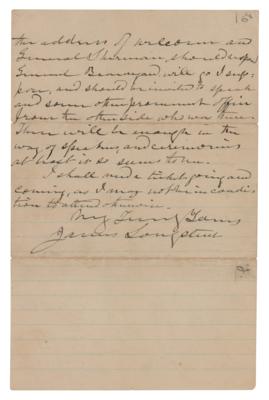 16
the address of welcome and
General Sherman, should
General Beauregard, will go I sup-
pose, and should be invited to speak
and some other prominent officer
from the other side who was there.
There will be enough in the
way of speeches, and ceremonies
at least it so seems to me.
I shall need tickets going and
coming, as I may not be in condi-
tion to attend otherwise.
Very Truly Yours
James Longstreet